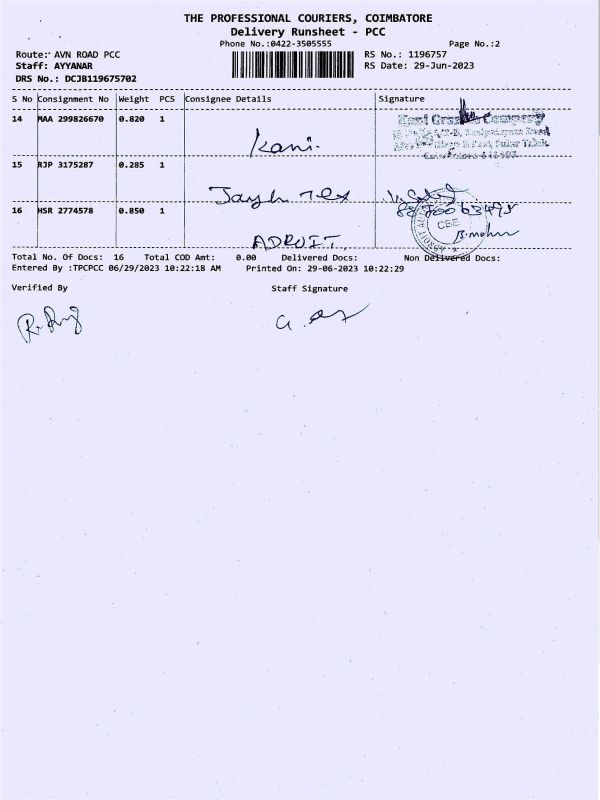 THE PROFESSIONAL COURIERS, COIMBATORE
Delivery Runsheet - PCC
Phone No.:0422-3505555 Page No.:2
Route: AVN ROAD PCC RS No.: 1196757
Staff: AYYANAR RS Date: 29-Jun-2023
DRS No.: DCJB119675702
S No Consignment No Weight PCS Consignee Details Signature
14 MAA 299826670 0.820 1
Kani.
15 RJP 3175287 0.285 1
Jayh Tex
16 HSR 2774578 0.850 1
CBE
B.mohan
ADROIT
Total No. Of Docs: 16 Total COD Amt: 0.00 Delivered Docs: Non Delivered Docs:
Entered By :TPCPCC 06/29/2023 10:22:18 AM Printed On: 29-06-2023 10:22:29
Verified By Staff Signature